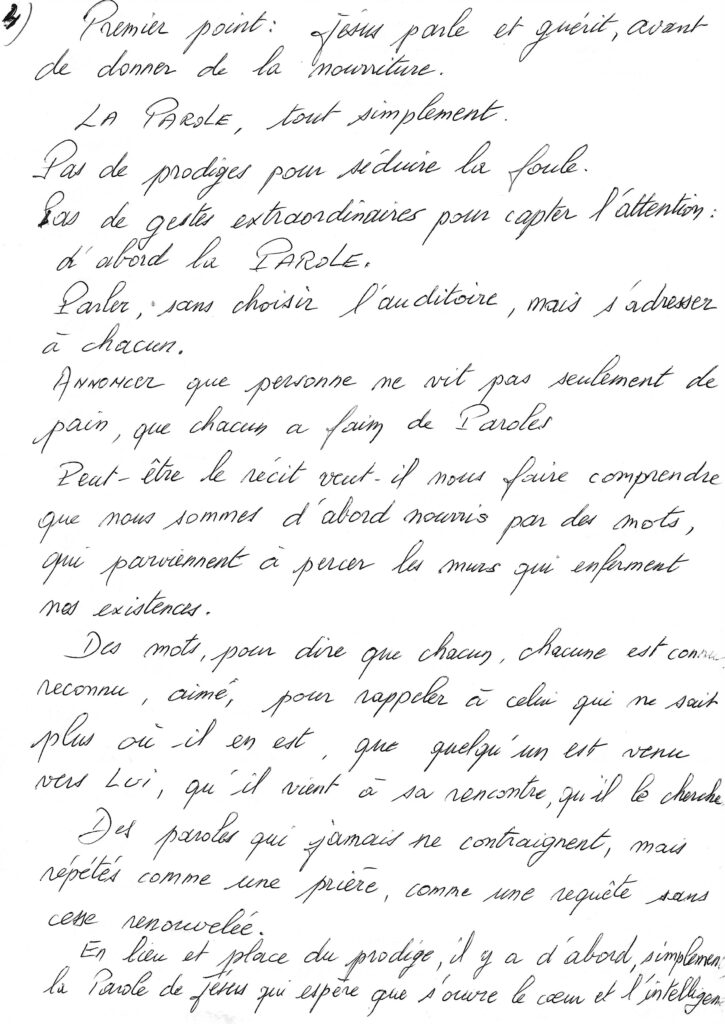 3) Premier point : Jésus parle et guérit, avant
de donner de la nourriture.
LA PAROLE, tout simplement.
Pas de prodiges pour séduire la foule.
Pas de gestes extraordinaires pour capter l'attention :
d'abord la PAROLE.
Parler, sans choisir l'auditoire, mais s'adresser
à chacun.
ANNONCER que personne ne vit pas seulement de
pain, que chacun a faim de Paroles
Peut-être le récit veut-il nous faire comprendre
que nous sommes d'abord nourris par des mots,
qui parviennent à percer les murs qui enferment
nos existences.
Des mots, pour dire que chacun, chacune est connu
reconnu, aimé, pour rappeler à celui qui ne sait
plus où il en est, que quelqu'un est venu
vers Lui, qu'il vient à sa rencontre, qu'il le cherche
Des paroles qui jamais ne contraignent, mais
répétés comme une prière, comme une requête sans
cesse renouvelée.
En lieu et place du prodige, il y a d'abord, simplemen
la Parole de Jésus qui espère que s'ouvre le cœur et l'intelligen